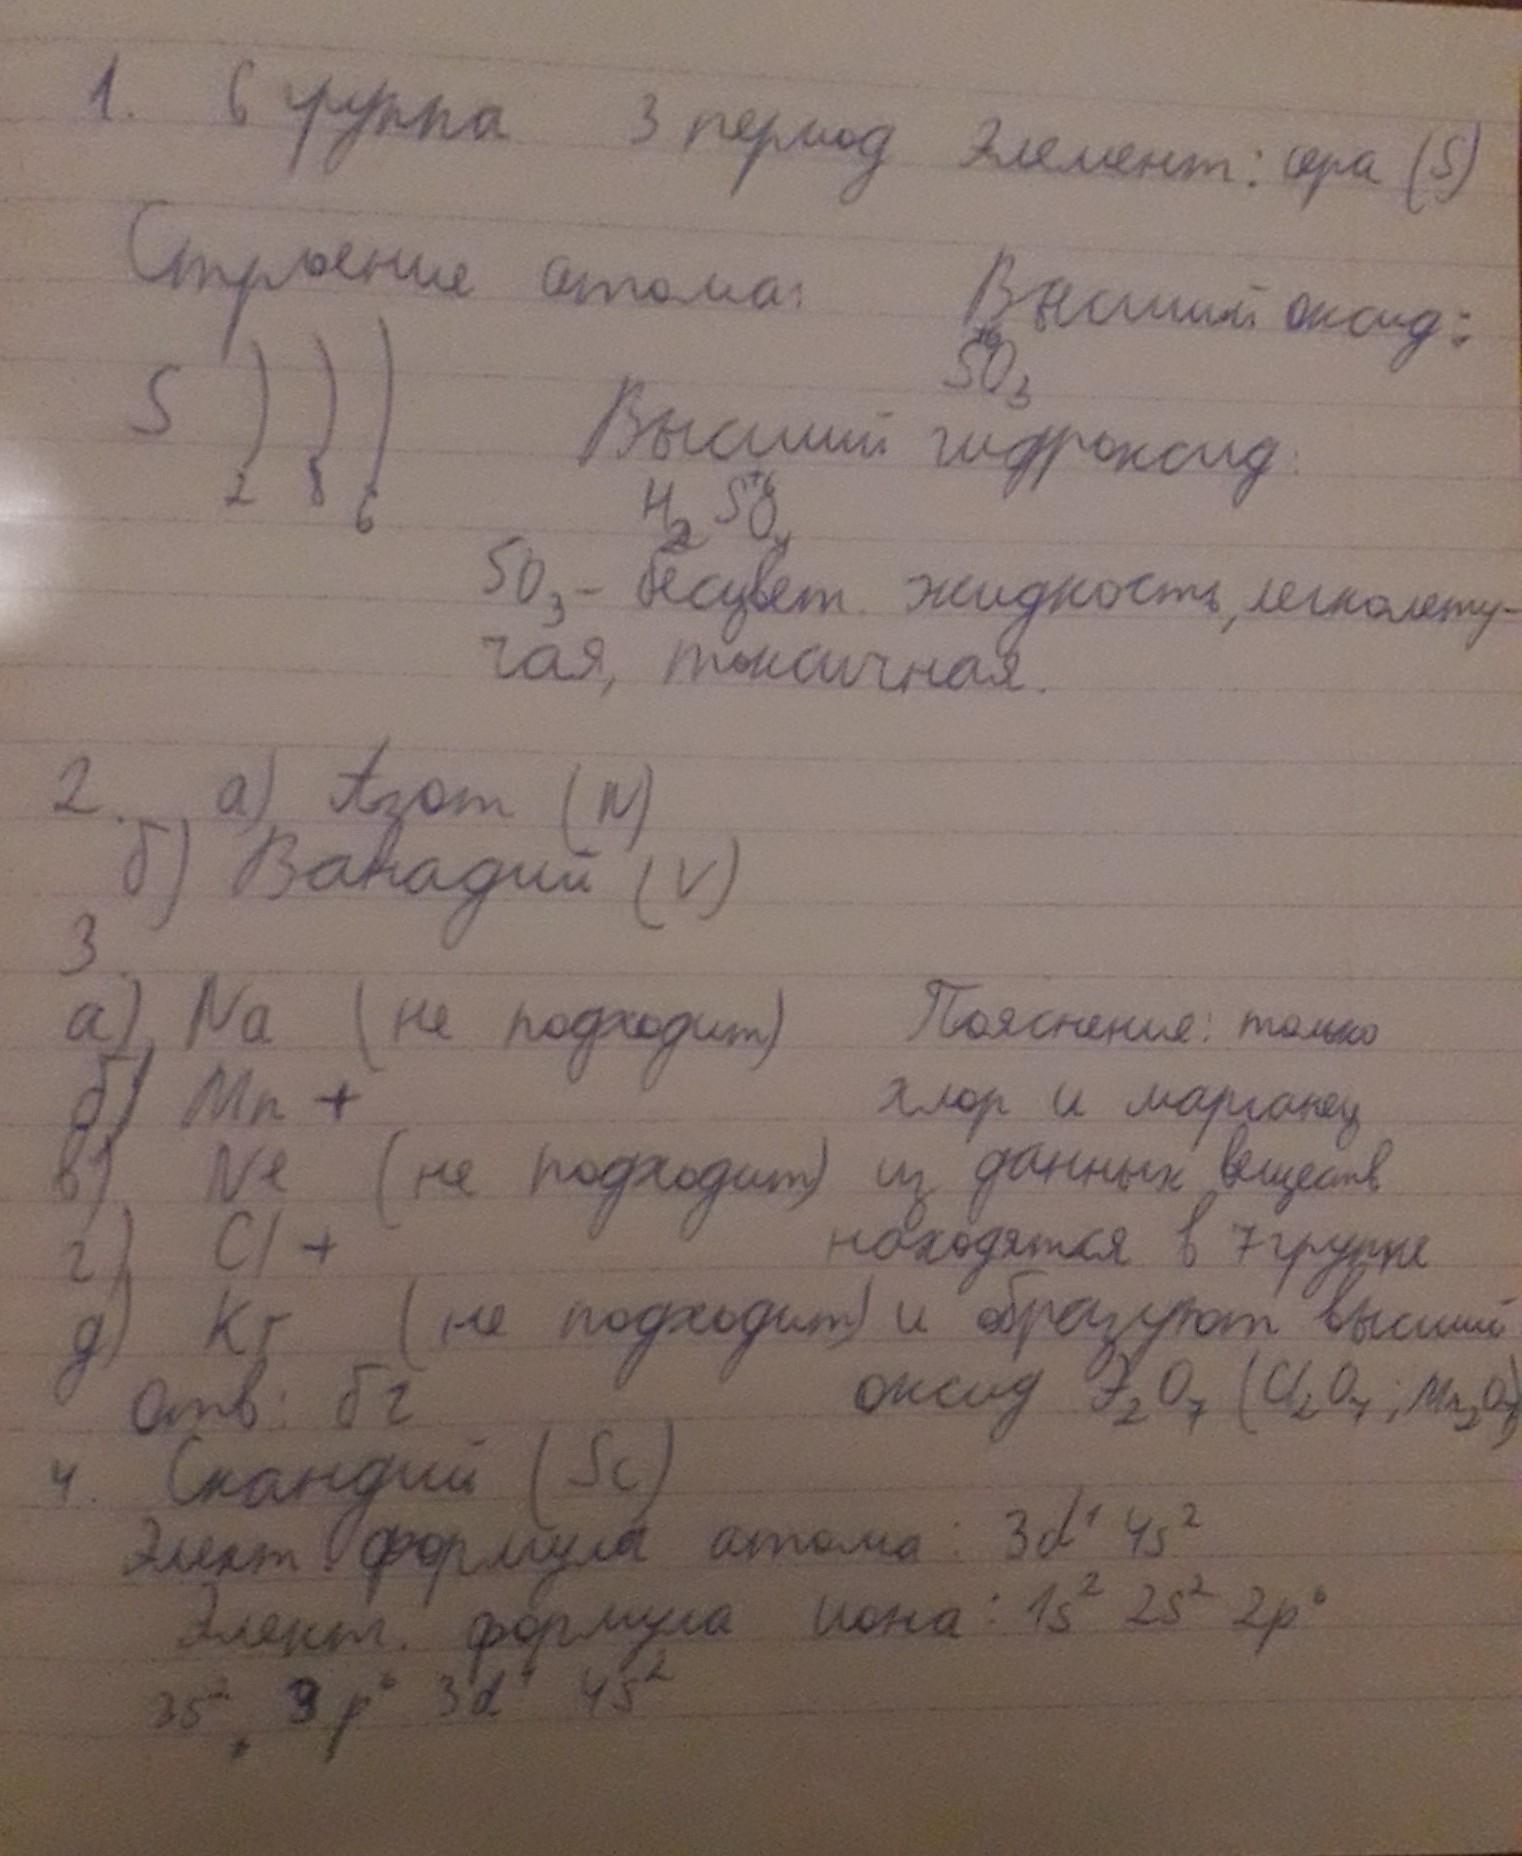 1. 6 группа 3 период Элемент: сера (S)
Строение атома: Высший оксид:
S ) ) ) SO₃⁺⁶
2 8 6 Высший гидроксид:
H₂S⁺⁶O₄
SO₃ - бесцвет. жидкость, легколету-
чая, токсичная.
2. а) Азот (N)
б) Ванадий (V)
3.
а) Na (не подходит) Пояснение: только
б) Mn + хлор и марганец
в) Ne (не подходит) из данных веществ
г) Cl + находятся в 7 группе
д) Kr (не подходит) и образуют высший
Отв: бг оксид Э₂O₇ (Cl₂O₇; Mn₂O₇)
4. Скандий (Sc)
Элект. формула атома: 3d¹ 4s²
Элект. формула иона: 1s² 2s² 2p⁶
3s² 3p⁶ 3d¹ 4s²